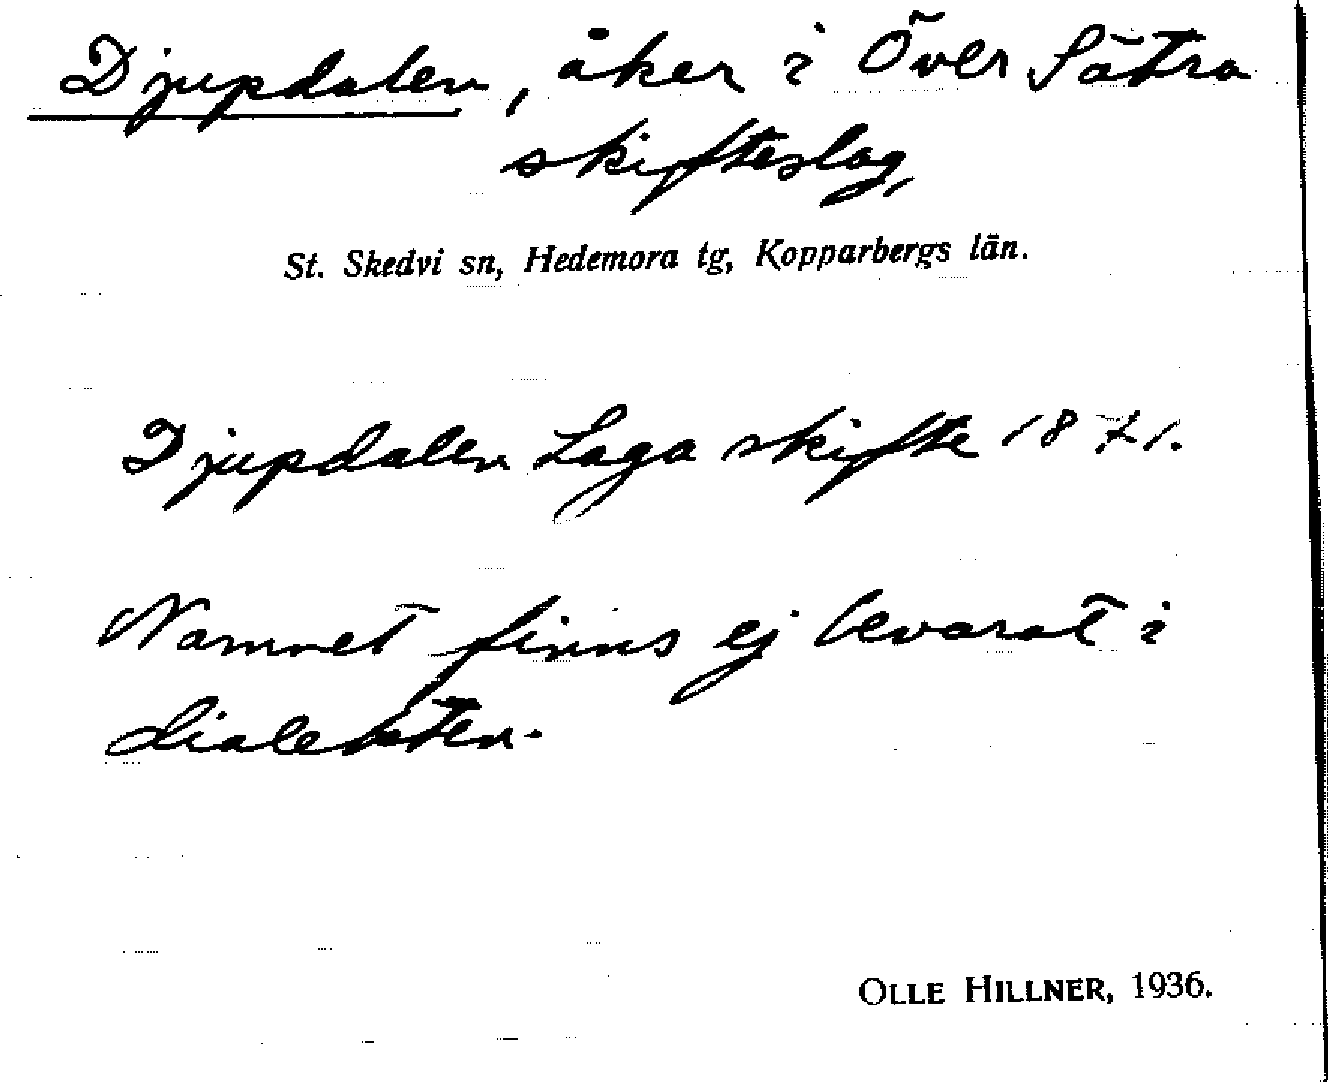 Djupdalen, åker i Över Sätra
skifteslag,
St. Skedvi sn, Hedemora tg, Kopparbergs län.
Djupdalen Laga skifte 1871.
Namnet finns ej bevarat i
dialekten.
OLLE HILLNER, 1936.